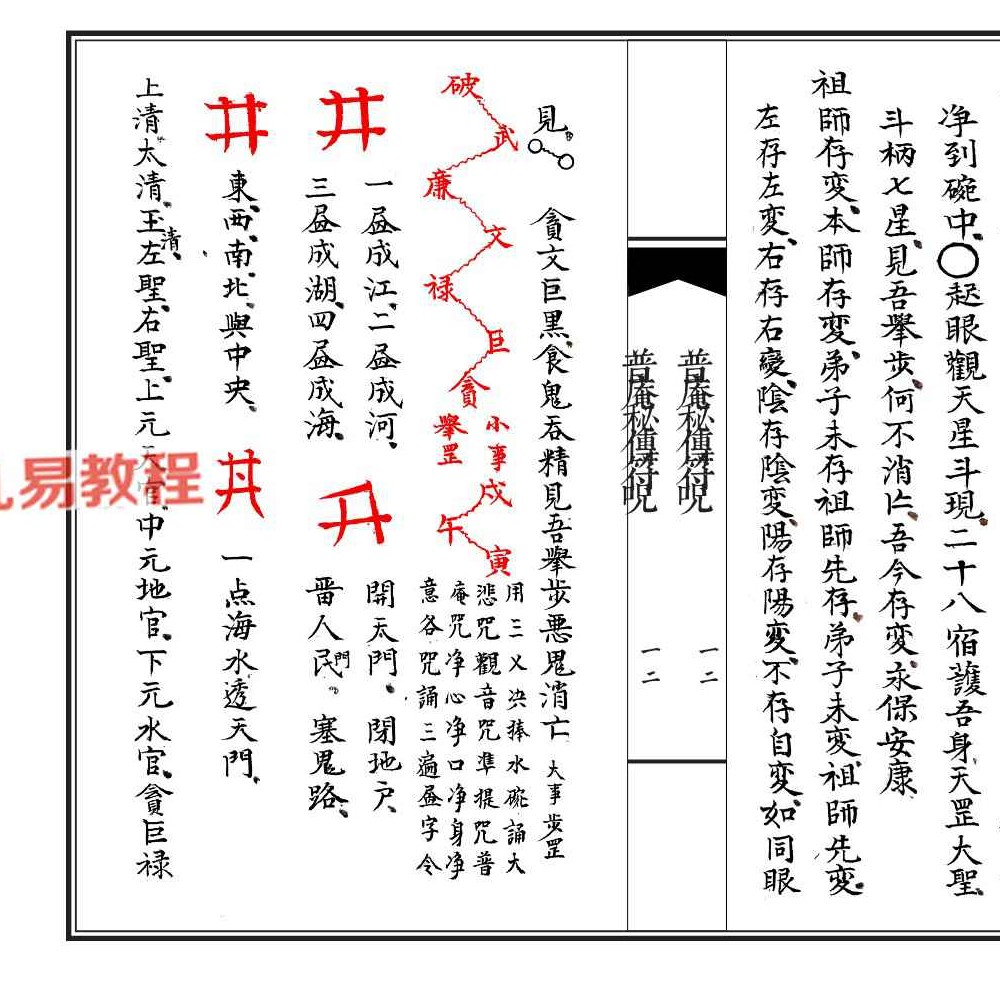 净到碗中、〇起眼觀天星斗現二十八宿護吾身天罡大聖、
斗柄七星、見吾舉步、何不消亡、吾今存变、永保安康
祖師存变、本師存变、弟子未存祖師先存、弟子未变、祖師先变、
左存左变、右存右變、陰存陰变、陽存陽变、不存自变、如同眼
普庵秘傳符咒
一二
普庵秘傳符咒
一二
見
貪文巨黑、食鬼吞精見吾舉步悪鬼消亡
大事步罡
破
武
廉
文
禄
巨
貪
小事
舉罡
戍
午
寅
用三义决捧水碗誦大
悲咒觀音咒準提咒普
庵咒净心净口净身净
意各咒誦三遍
字令
井
一
成江、二
成河、
三
成湖、四
成海、
開天門、閉地户、
人民門。塞鬼路、
井
東、西、南、北、與中央、
一点海水透天門、
上清太清、玉清、左聖、右聖、上元天官、中元地官、下元水官、貪巨禄
易教程